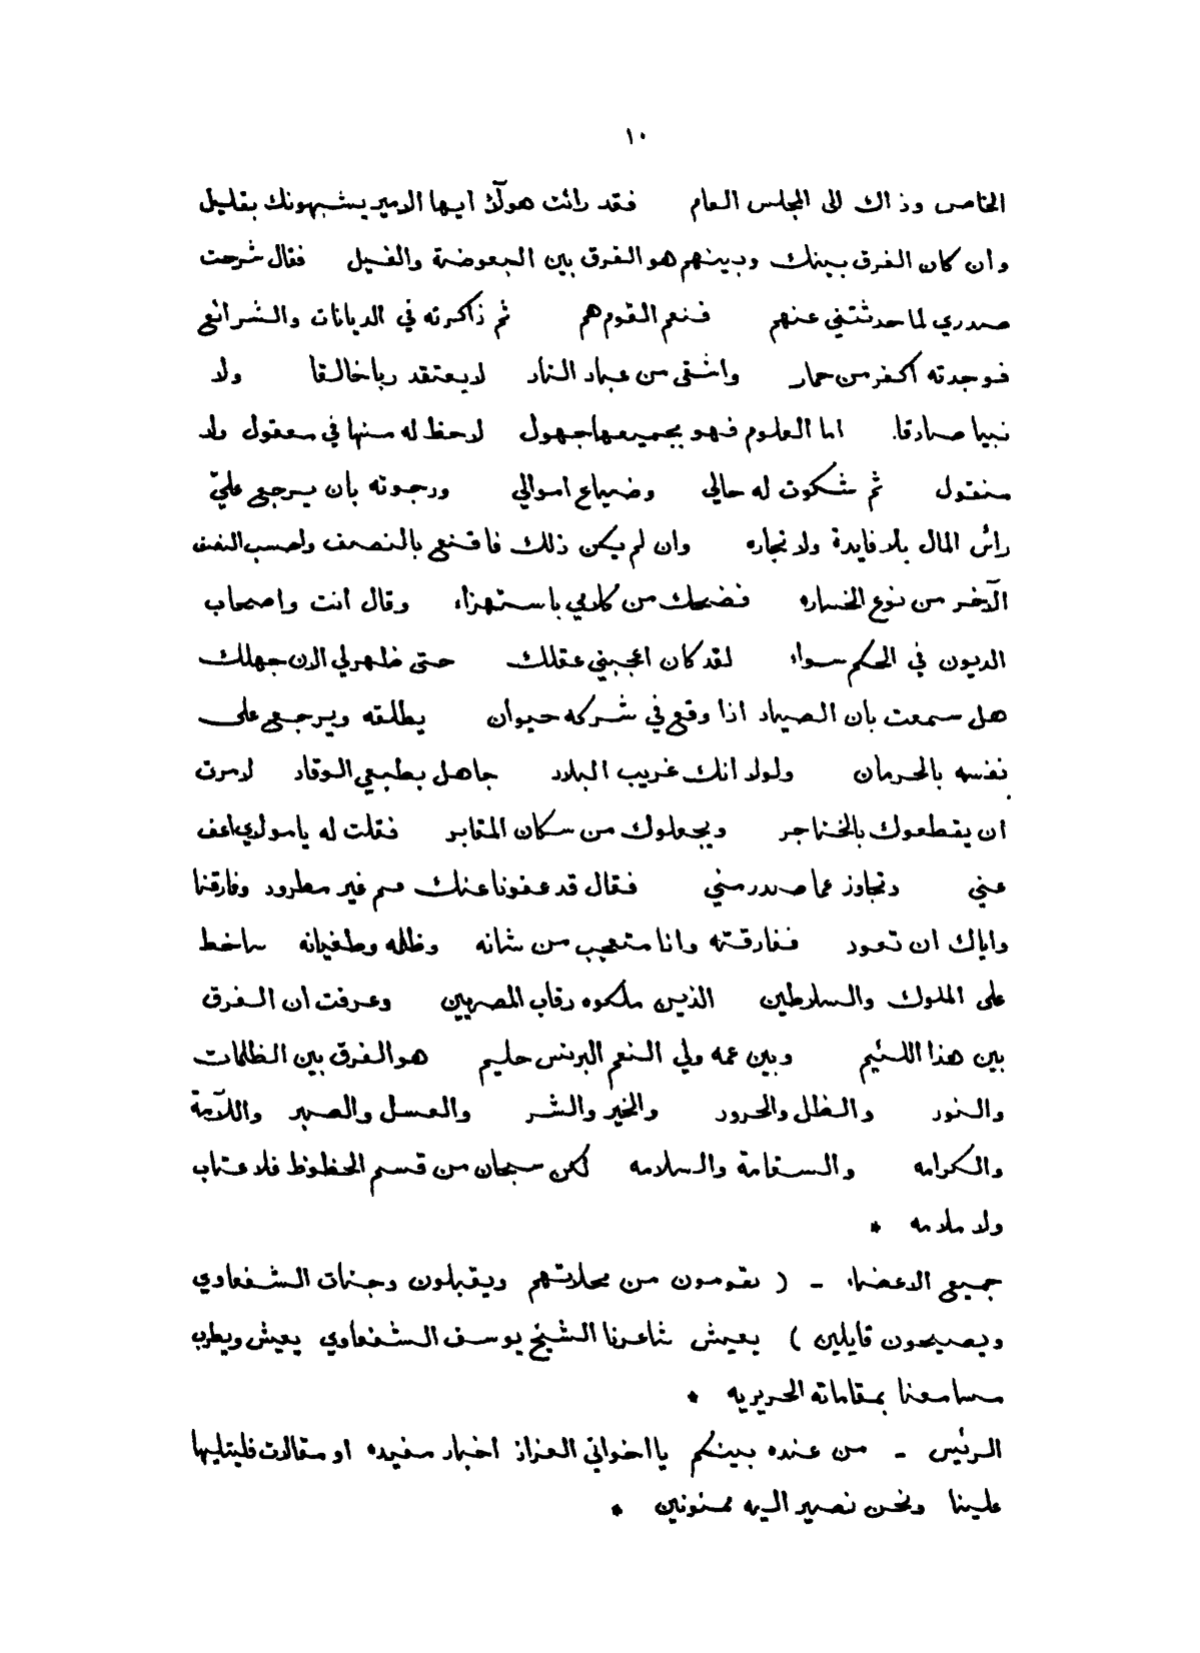 ١٠
الخاص وذاك الى المجلس العام فقد رائت هولآء ايها الامير يشبهونك بقليل
وان كان الفرق بينك وبينهم هو الفرق بين البعوضة والفيل فقال شرحت
صدري لما حدثتني عنهم فنعم القوم هم ثم ذاكرته في الديانات والشرائع
فوجدته اكفر من حمار واشقى من عباد النار لا يعتقد ربا خالقا ولا
نبيا صادقا اما العلوم فهو بجميعها جهول لا حظ له منها في معقول ولا
منقول ثم شكوت له حالي وضياع اموالي ورجوته بان يرجع عليّ
رأس المال بلا فايدة ولا تجاره وان لم يكن ذلك فاقنع بالنصف واحسب النصف
الآخر من نوع الخساره فضحك من كلامي باستهزاء وقال انت واصحاب
الديون في الحكم سواء لقد كان اعجبني عقلك حتى ظهر لي الان جهلك
هل سمعت بان الصياد اذا وقع في شركه حيوان يطلقه ويرجع على
نفسه بالحرمان ولولا انك غريب البلاد جاهل بطبعي الوقاد لامرت
ان يقطعوك بالخناجر ويجعلوك من سكان المقابر فقلت له يا مولاي اعف
عني وتجاوز عما صدر مني فقال قد عفونا عنك قم غير مطرود وفارقنا
واياك ان تعود ففارقته وانا متعجب من شانه وظلمه وطغيانه ساخط
على الملوك والسلاطين الذين ملكوه رقاب المصريين وعرفت ان الفرق
بين هذا اللئيم وبين عمه ولي النعم البرنس حليم هو الفرق بين الظلمات
والنور والظل والحرور والخير والشر والعسل والصبر واللآمة
والكرامه والسقامة والسلامه لكن سبحان من قسم الحظوظ فلا عتاب
ولا ملامه *
جميع الاعضاء - ( يقومون من محلاتهم ويقبلون وجنات الشفعاوي
ويصيحون قايلين ) يعيش شاعرنا الشيخ يوسف الشفعاوي يعيش ويطرب
مسامعنا بمقاماته الحريريه *
الرئيس - من عنده بينكم يا اخواني العزاز اخبار مفيده او مقالات فليتليها
علينا ونحن نصير اليه ممنونين *